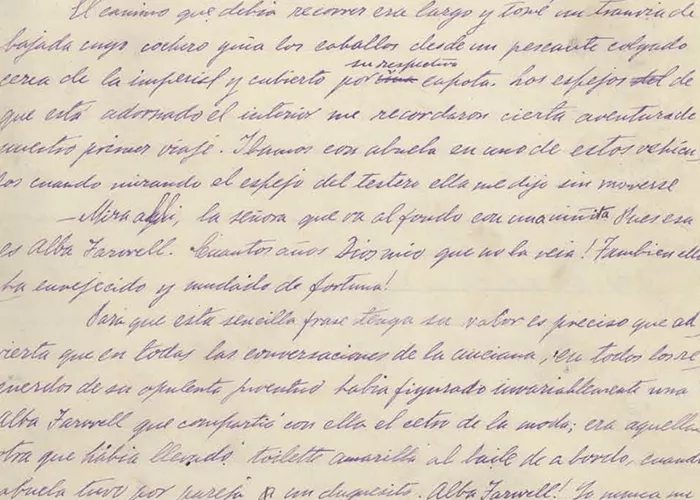 El camino que debia recorrer era largo y tomé un tranvia de
bajada cuyo cochero guia los caballos desde un pescante colgado
su respectivo
cerca de la imperial y cubierto por capota. Los espejos de
que está adornado el interior me recordaron cierta aventura de
nuestro primer viaje. Ibamos con abuela en uno de estos vehicu-
los cuando mirando el espejo del testero ella me dijo sin moverse
— Mira alli, la señora que va al fondo con una niñita Pues esa
es Alba Farwell. Cuantos años Dios mio que no la veia! Tambien ella
ha envejecido y mudado de fortuna!
Para que esta sencilla frase tenga su valor es preciso que ad-
vierta que en todas las conversaciones de la anciana, en todos los re-
cuerdos de su opulenta juventud habia figurado invariablemente una
Alba Farwell que compartió con ella el cetro de la moda; era aquella
otra que había llevado toilette amarilla al baile de a bordo, cuando
abuela tuvo por pareja a un duquesito. Alba Farwell! Yo nunca